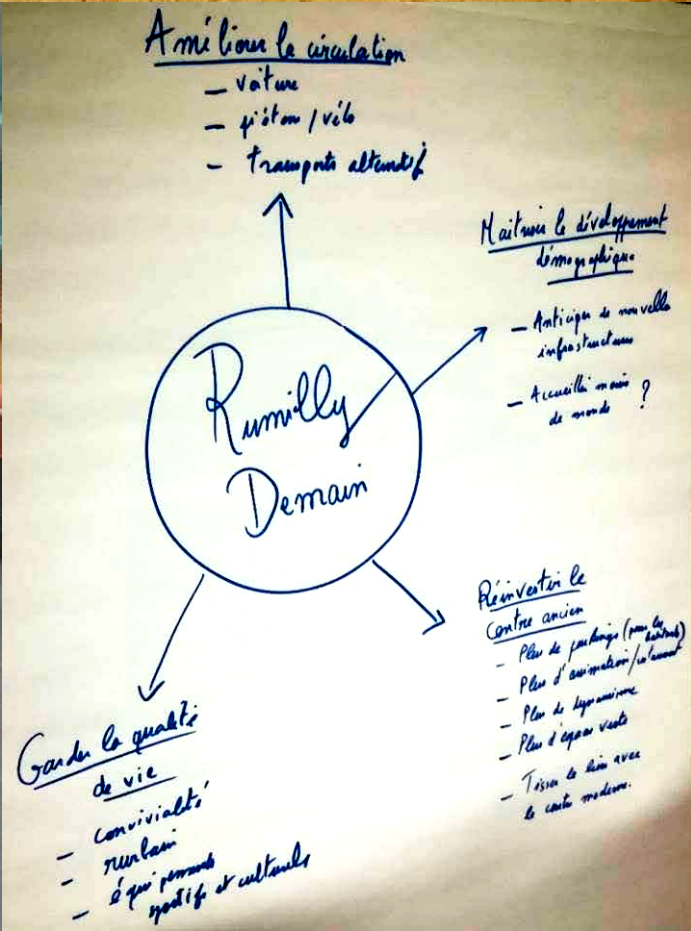 Améliorer la circulation
— voiture
— piéton / vélo
— transports alternatif
Maitriser le développement
démographique
— Anticiper de nouvelles
infrastructures
— Accueillir moins
de monde ?
Rumilly
Demain
Réinvestir le
Centre ancien
— Plus de parkings (pour les
habitants)
— Plus d'animation /
— Plus de dynamisme
— Plus d'espaces verts
— Tisser le lien avec
le centre moderne.
Garder la qualité
de vie
— convivialité
— rurbain
— équipements
sportifs et culturels